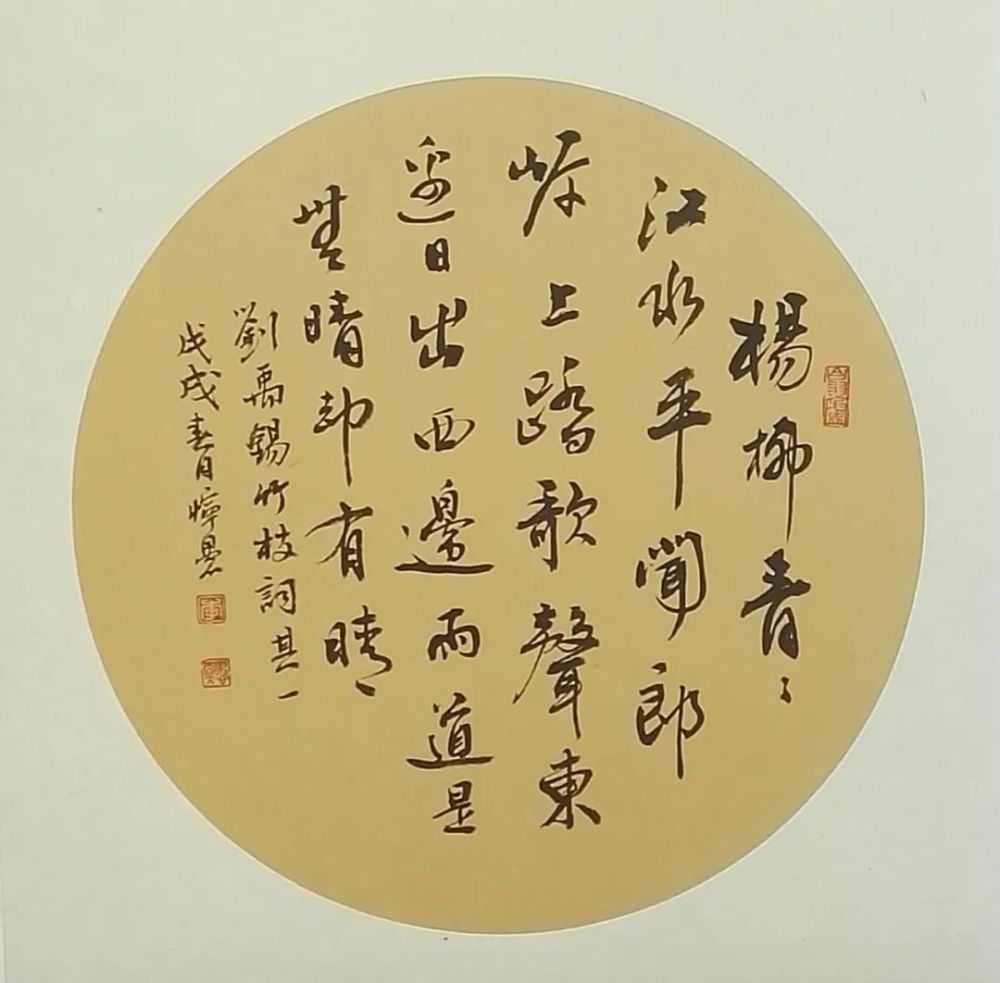 楊柳青〻
江水平聞郎
岸上踏歌聲東
邊日出西邊雨道是
無晴却有晴
劉禹錫竹枝詞其一
戊戌春日